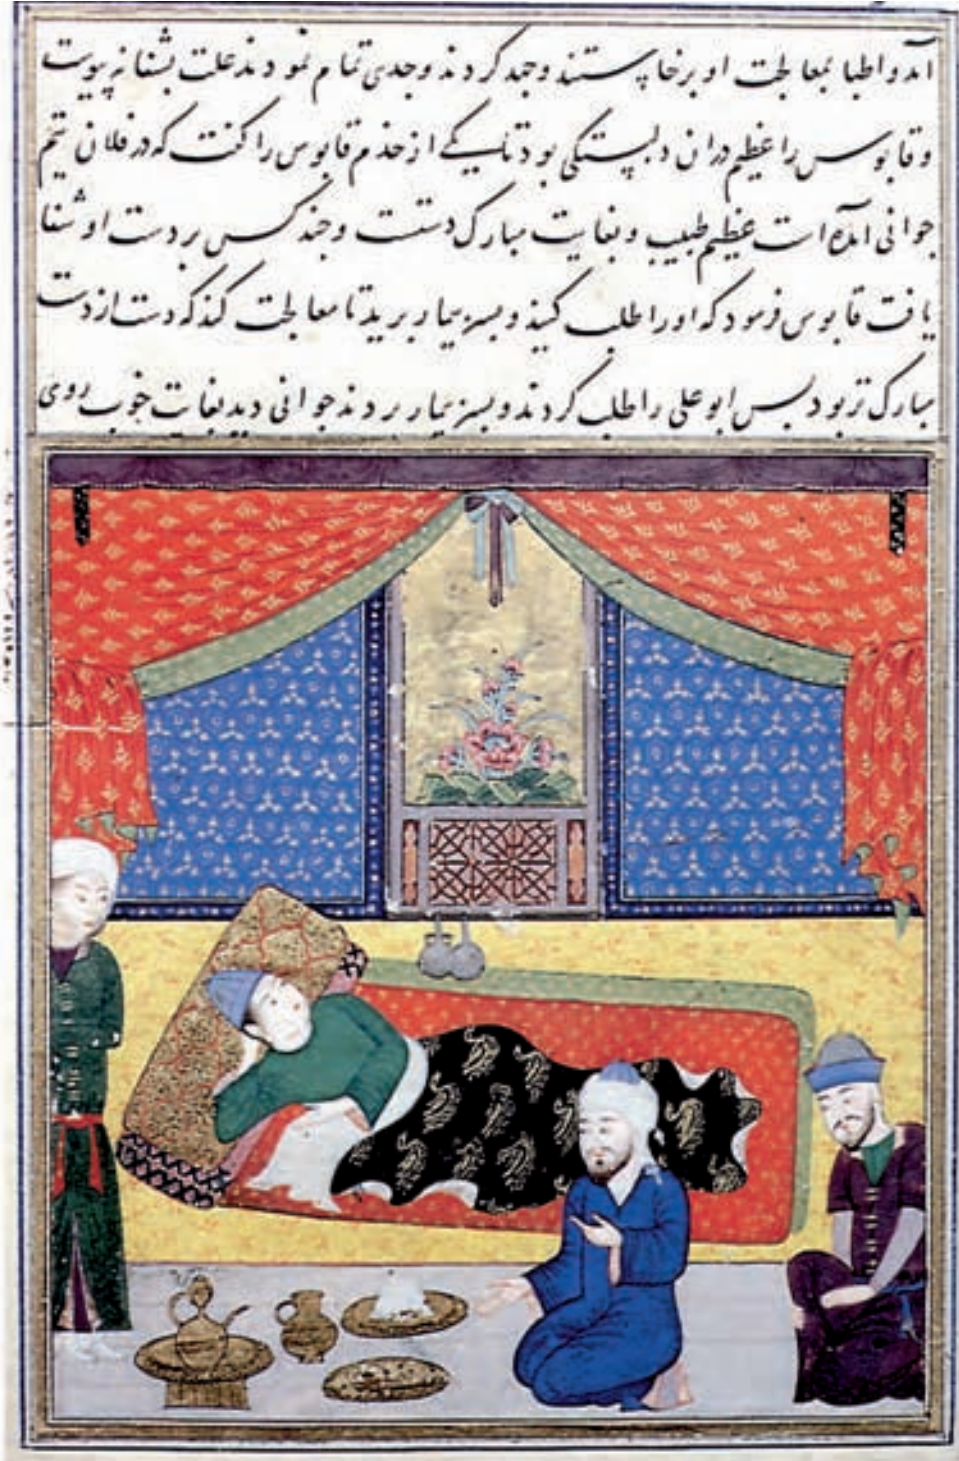 آمد و اطبا بمعالجت او برخاستند و جهد کردند و جدی تمام نمودند علت بشفا نه پیوست
و قابوس را عظیم دران دلبستگی بود تا یکے از خدم قابوس را گفت که در فلان تیم
جوانی آمده است عظیم طبیب و بغایت مبارک دستست و چند کس بر دست او شفا
یافت قابوس فرمود که او را طلب کنید و بسر بیمار برید تا معالجت کند که دست از دست
مبارک تر بود پس ابو علی را طلب کردند و بسر بیمار بردند جوانی دید بغایت خوب روی